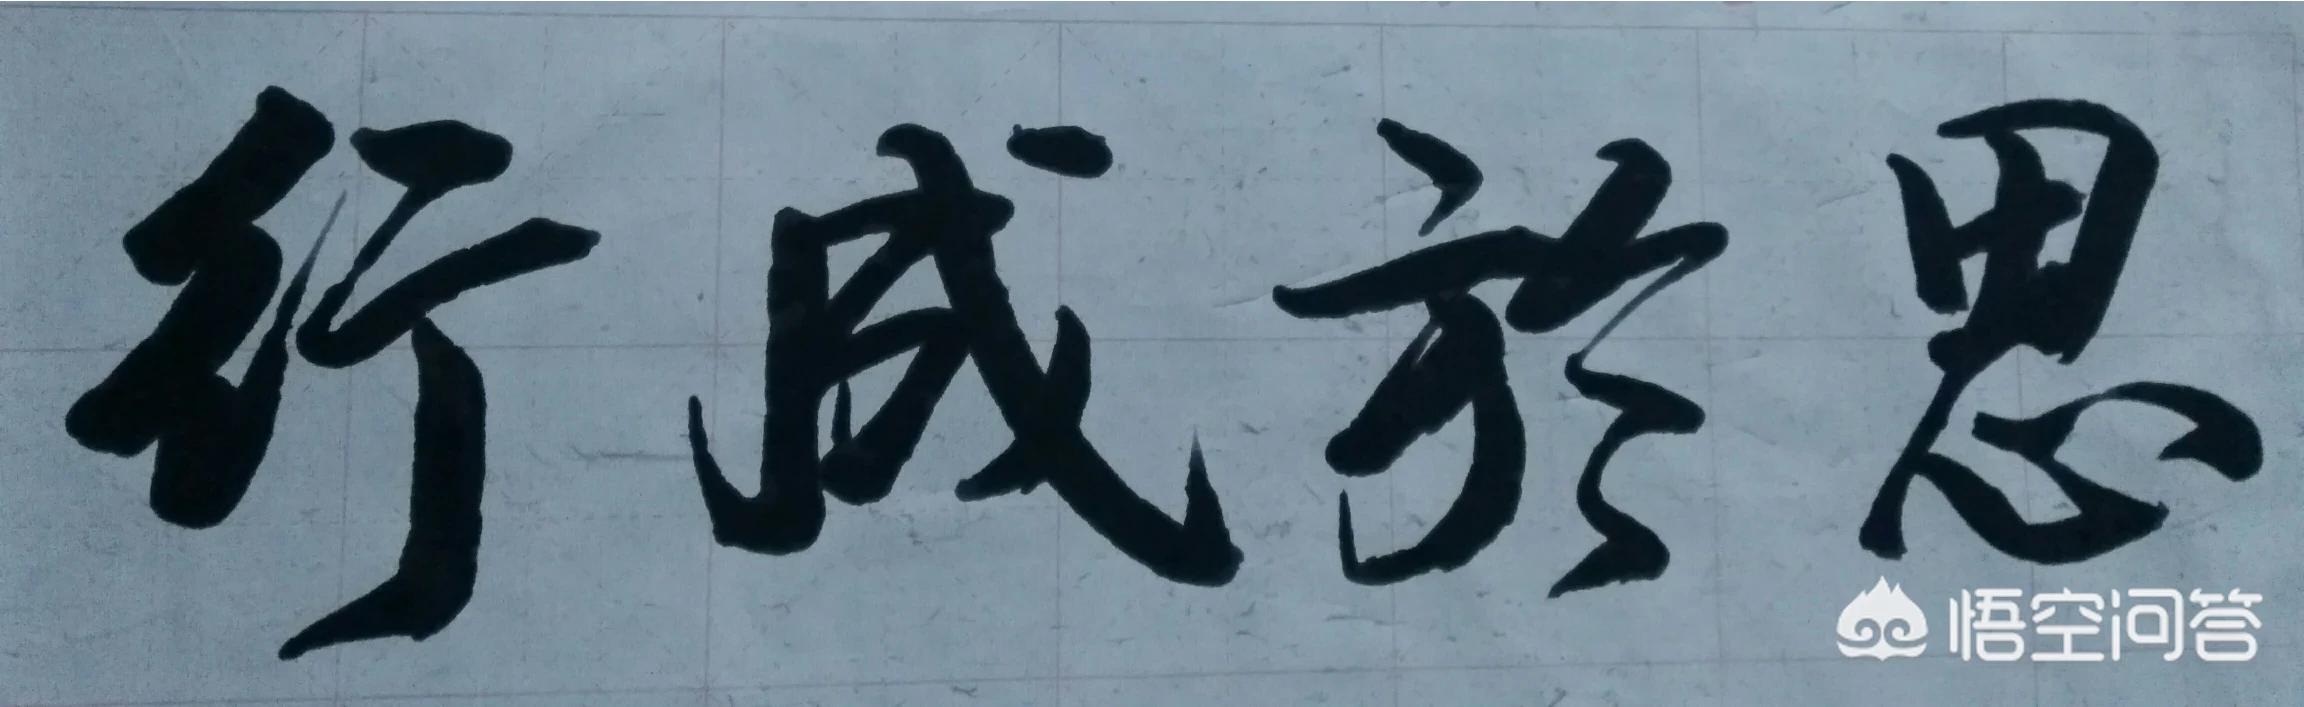 思於成行
悟空问答